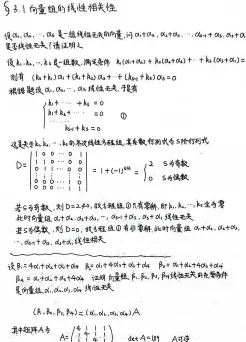 §3.1 向量组的线性相关性
设α₁, α₂, ⋯, αs 是一组线性无关的向量, 问 α₁+α₂, α₂+α₃, ⋯, αs₋₁+αs, αs+α₁
是否线性无关? 请证明之
设 k₁, k₂, ⋯, ks 是一组数, 满足条件 k₁(α₁+α₂)+k₂(α₂+α₃)+⋯+ks(αs+α₁)=
则有 (ks+k₁)α₁+(k₁+k₂)α₂+⋯+(ks₋₁+ks)αs=0
根据题设 α₁, α₂, ⋯, αs 线性无关, 于是有
k₁+⋯+ks=0
k₁+k₂+⋯=0 ①
⋯
ks₋₁+ks=0
D= 1 0 0 ⋯ 0 1
1 1 0 ⋯ 0 0
0 1 1 ⋯ 0 0
0 0 0 ⋯ 1 1
= 1+(-1)ˢ⁺¹ = { 2 s为奇数
0 s为偶数
若s为奇数, 则 D=2≠0, 故方程组①只有零解, 即 k₁, k₂, ⋯, ks 全为零
此时向量组 α₁+α₂, α₂+α₃, ⋯, αs₋₁+αs, αs+α₁ 线性无关
若s为偶数, 则 D=0, 故方程组①有非零解, 此时向量组 α₁+α₂, α₂+α₃,
⋯, αs₋₁+αs, αs+α₁ 线性相关
设 β₁=4α₁+α₂+α₃+α₄ β₂=α₁+4α₂+α₃+α₄ β₃=α₁+α₂+4α₃+α₄
β₄=α₁+α₂+α₃+4α₄ 证明 向量组 β₁, β₂, β₃, β₄ 线性无关的充要条件
是向量组 α₁, α₂, α₃, α₄ 线性无关
(β₁, β₂, β₃, β₄)=(α₁, α₂, α₃, α₄)A
其中矩阵A为
A= 4 1 1 1
1 4 1 1
A可逆